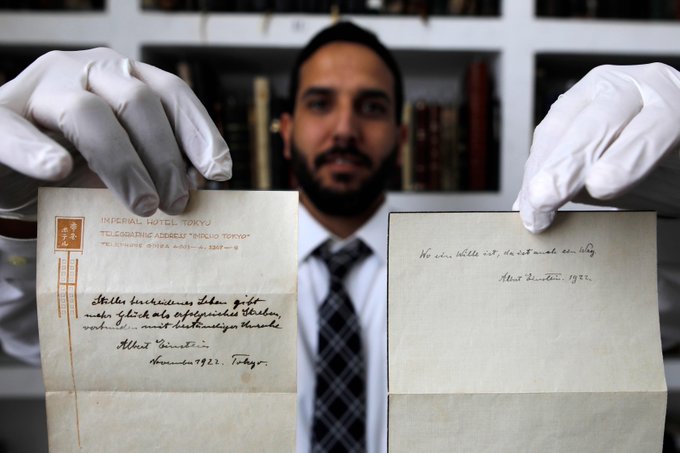 IMPERIAL HOTEL TOKYO
TELEGRAPHIC ADDRESS "IMPEHO TOKYO"
帝国
ホテル
Stilles bescheidenes Leben gibt
mehr Glück als erfolgreiches Streben,
verbunden mit beständiger Unruhe
Albert Einstein
November 1922. Tokyo.
Wo ein Wille ist, da ist auch ein Weg
Albert Einstein. 1922.